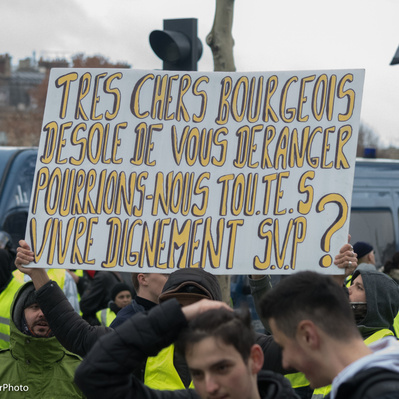 TRES CHERS BOURGEOIS
DESOLE DE VOUS DERANGER
POURRIONS-NOUS TOU.TE.S
VIVRE DIGNEMENT S.V.P ?
rPhoto